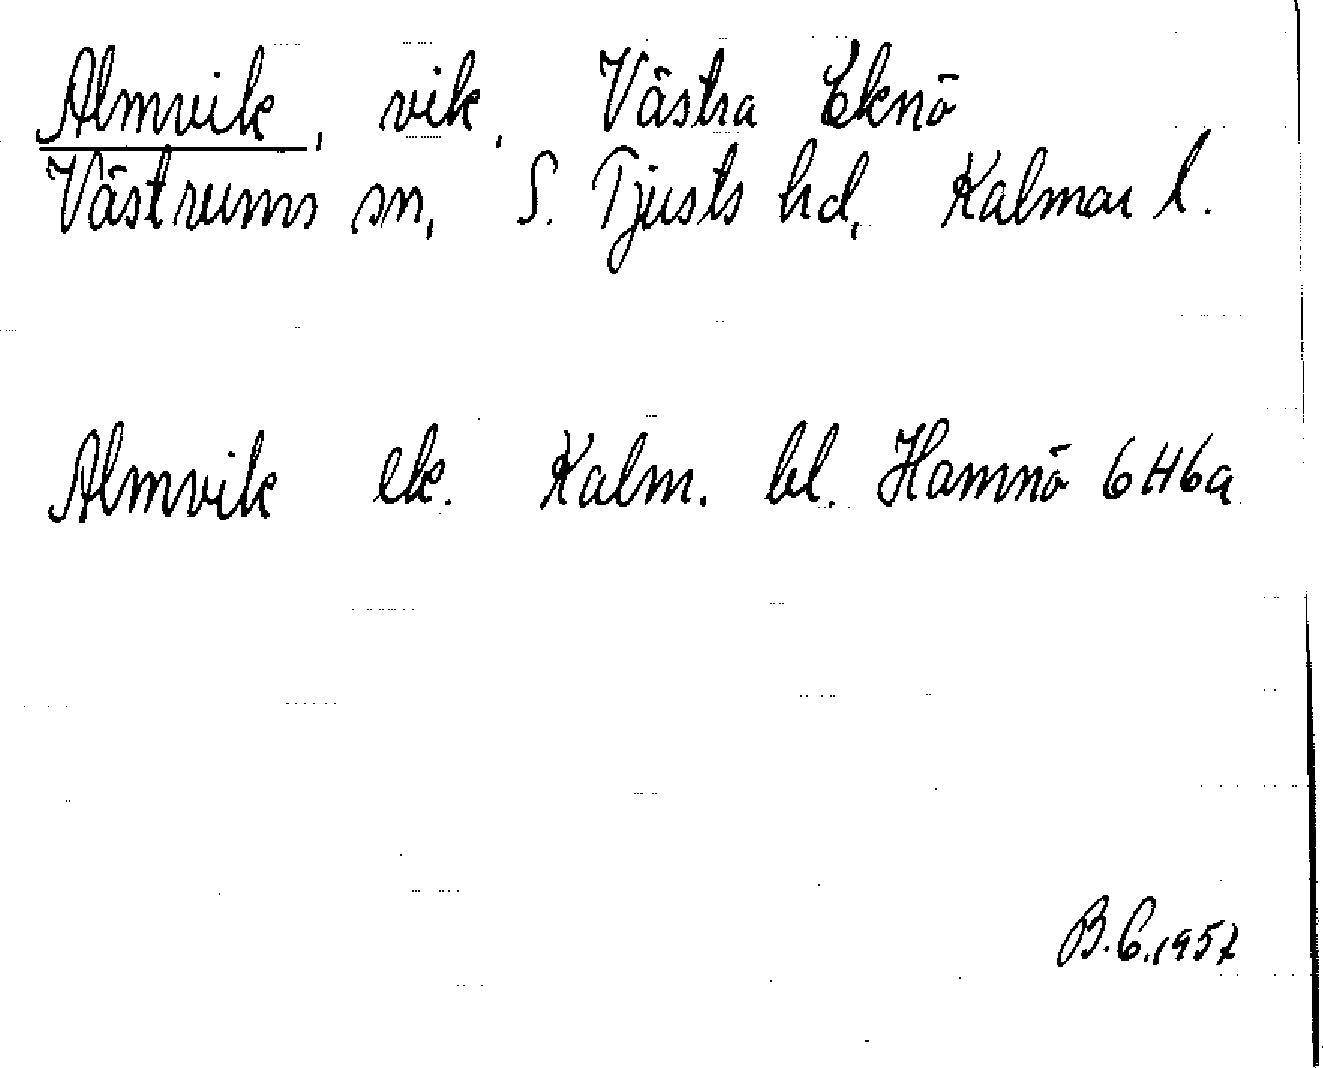 Almvik, vik, Västra Eknö
Västrums sn, S. Tjusts hd, Kalmar l.
Almvik ek. Kalm. bl. Hamnö 6H6a
B.C. 1957